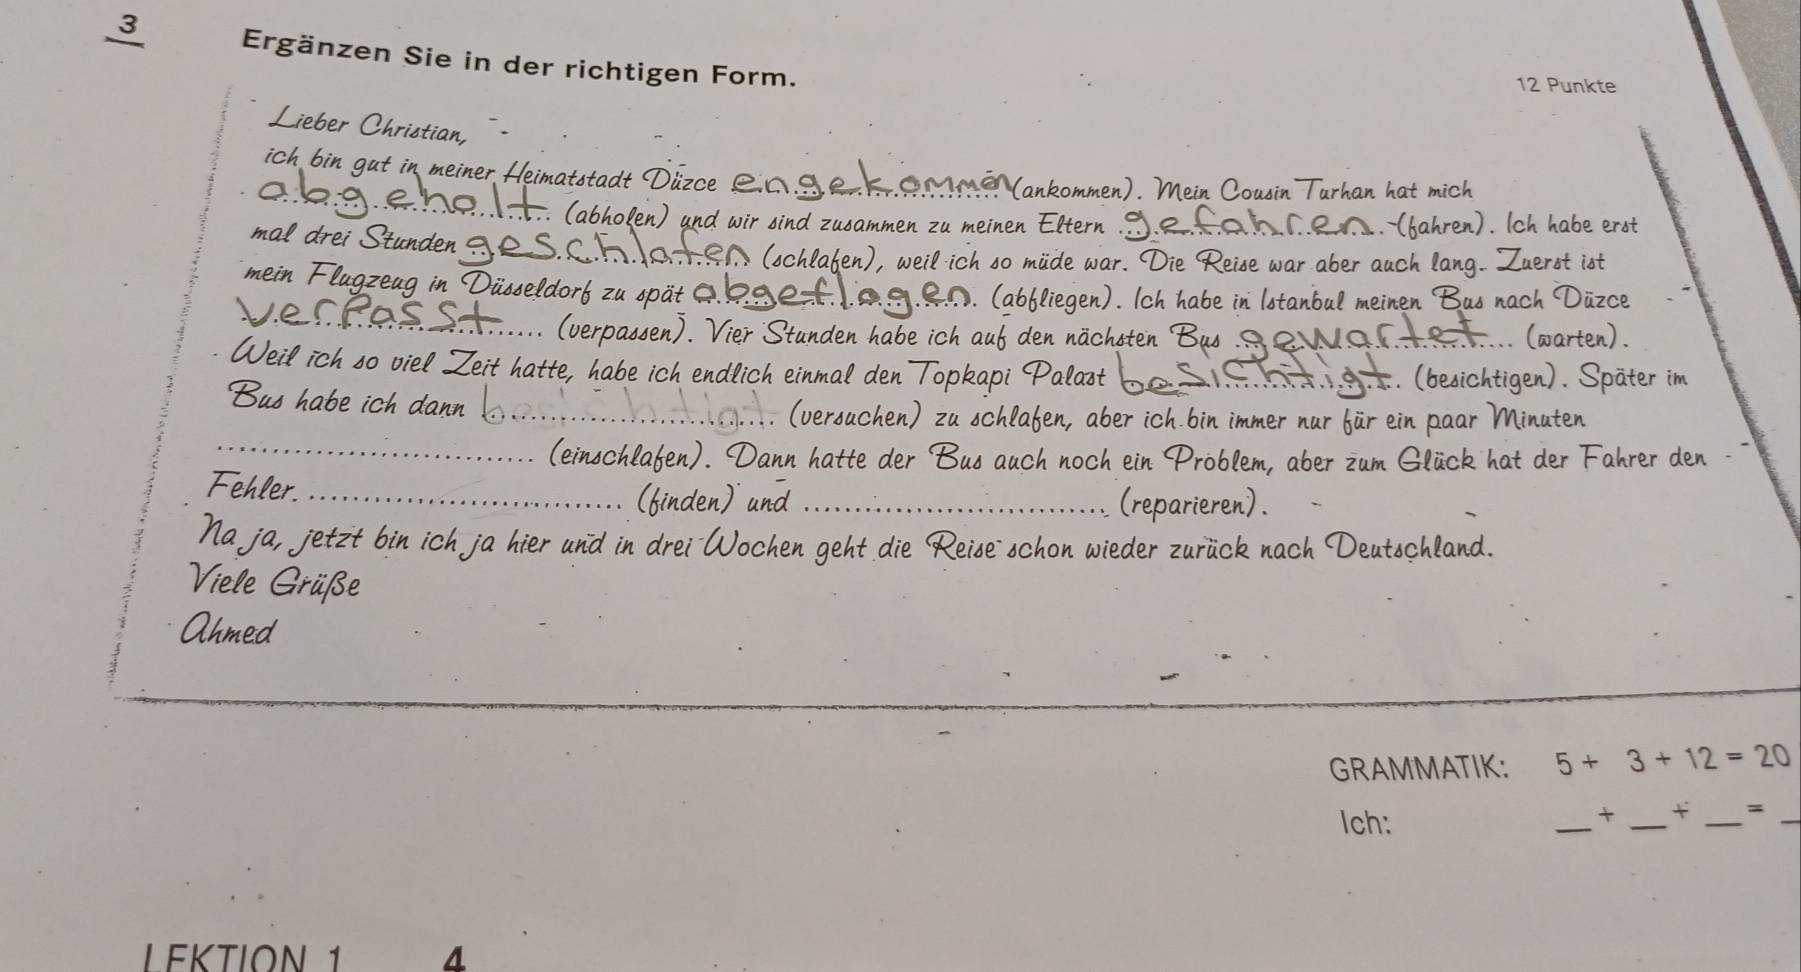 3 Ergänzen Sie in der richtigen Form.
12 Punkte
Lieber Christian,
ich bin gut in meiner Heimatstadt Düzce engekommen (ankommen). Mein Cousin Turhan hat mich
abgeholt (abholen) und wir sind zusammen zu meinen Eltern gefahren (fahren). Ich habe erst
mal drei Stunden geschlafen (schlafen), weil ich so müde war. Die Reise war aber auch lang. Zuerst ist
mein Flugzeug in Düsseldorf zu spät abgeflogen (abfliegen). Ich habe in Istanbul meinen Bus nach Düzce
verpasst (verpassen). Vier Stunden habe ich auf den nächsten Bus gewartet (warten).
Weil ich so viel Zeit hatte, habe ich endlich einmal den Topkapi Palast besichtigt (besichtigen). Später im
Bus habe ich dann besichtigt (versuchen) zu schlafen, aber ich bin immer nur für ein paar Minuten
(einschlafen). Dann hatte der Bus auch noch ein Problem, aber zum Glück hat der Fahrer den
Fehler (finden) und (reparieren).
Na ja, jetzt bin ich ja hier und in drei Wochen geht die Reise schon wieder zurück nach Deutschland.
Viele Grüße
Ahmed
GRAMMATIK: 5 + 3 + 12 = 20
Ich: __ + __ + __ = __
LEKTION 1 4